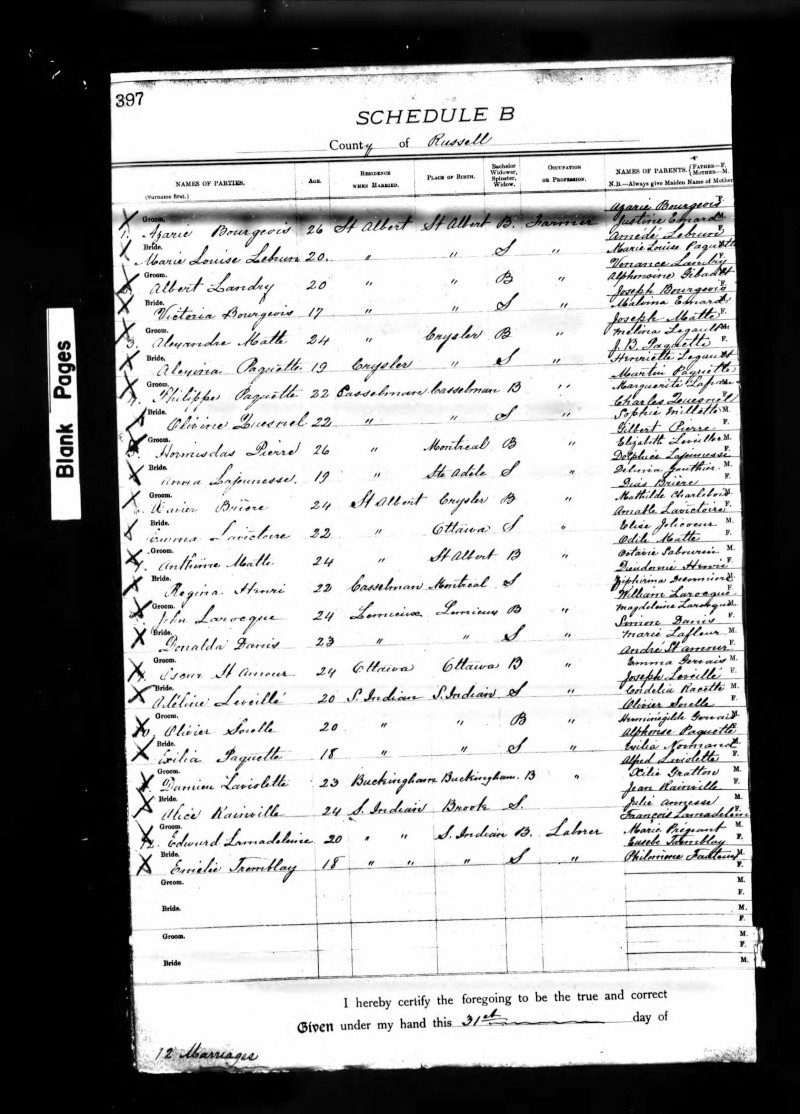 397
SCHEDULE B
County of Russell
NAMES OF PARTIES.
(Surname first.)
AGE.
RESIDENCE
WHEN MARRIED.
PLACE OF BIRTH.
Bachelor
Widower,
Spinster,
Widow.
OCCUPATION
OR PROFESSION.
NAMES OF PARENTS. {FATHER—F. MOTHER—M.
N.B.—Always give Maiden Name of Mother
Azarie Bourgeois F.
Groom.
1. Azarie Bourgeois 26 St Albert St Albert B. Farmer Justine Emard M.
Amédé Lebrun F.
Bride.
Marie Louise Lebrun 20. " " S " Marie Louise Paquette
Venance Landry
Groom.
Albert Landry 20 " " B "
Joseph Bourgeois F.
Bride.
Victoria Bourgeois 17 " " S " Malvina Emard
Joseph Matte F.
Groom.
3. Alexandre Matte 24 " Crysler B " Melina Legault M.
J. B. Paquette F.
Bride.
Alexina Paquette 19 Crysler " S " Henriette Legault
Martin Paquette
Groom.
Philippe Paquette 22 Casselman Casselman B " Marguerite
Charles Quesnel
Bride.
Olivine Quesnel 22 " " S " Sophie Millette M.
Gilbert Pierre F.
Groom.
Hormisdas Pierre 26 " Montreal B " Elizabeth M.
Lajeunesse
Bride.
Anna Lajeunesse. 19 " Ste Adele S " Delima Gauthier M.
Brière F.
Groom.
Xavier Brière 24 St Albert Crysler B " Mathilde Charlebois
Amable Lavictoire F.
Bride.
Emma Lavictoire 22 " Ottawa S " Elise Jolicoeur M.
Odile Matte F.
Groom.
7. Anthime Matte 24 " St Albert B " Octavie Sabourin M.
Dieudonné Henri F.
Bride.
Regina Henri 22 Casselman Montreal S
William Larocque
Groom.
John Larocque 24 Lemieux Lemieux B Magdeleine
Simon Danis F.
Bride.
Donalda Danis 23 " " S " Marie Lafleur M.
André St amour F.
Groom.
Oscar St Amour 24 Ottawa Ottawa B Emma Gervais M.
Joseph Leveillé F.
Bride.
Adéline Leveillé 20 S. Indian S. Indian S " Cordelia Racette M.
Olivier F.
Groom.
10. Olivier 20 " " B " Herminigilde Gervais
Alphonse Paquette
Bride.
Exilia Paquette 18 " " S " Exilia Normand
Alfred Laviolette F.
Groom.
Damien Laviolette 23 Buckingham Buckingham. B " Gratton M.
Jean Rainville F.
Bride.
Alice Rainville 24 S. Indian Brook S. Julie M.
François Lamadeleine
Groom.
12. Edward Lamadeleine 20 " " S. Indian B. Laborer Marie Pregent M.
Euseb Tremblay F.
Bride.
Emelie Tremblay 18 " " " S " Philomene M.
F.
Groom.
M.
F.
Bride.
M.
F.
Groom.
M.
F.
Bride
M.
I hereby certify the foregoing to be the true and correct
Given under my hand this 31st day of
12 Marriages
Blank Pages